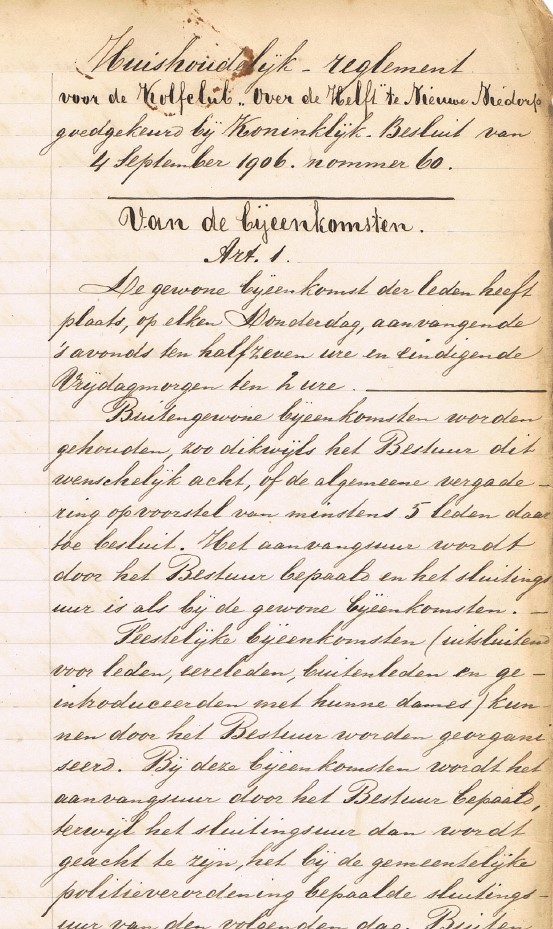 Huishoudelijk - reglement
voor de Kolfclub „Over de Helft" te Nieuwe Niedorp
goedgekeurd bij Koninklijk - Besluit van
4 September 1906. nommer 60.
Van de bijeenkomsten.
Art. 1.
De gewone bijeenkomst der leden heeft
plaats, op elken Donderdag, aanvangende
's avonds ten halfzeven ure en eindigende
Vrijdagmorgen ten 2 ure.
Buitengewone bijeenkomsten worden
gehouden, zoo dikwijls het Bestuur dit
wenschelijk acht, of de algemeene vergade-
ring op voorstel van minstens 5 leden daar
toe besluit. Het aanvangsuur wordt
door het Bestuur bepaald en het sluitings
uur is als bij de gewone bijeenkomsten. -
Feestelijke bijeenkomsten (uitsluitend
voor leden, eereleden, buitenleden en ge-
introduceerden met hunne dames) kun-
nen door het Bestuur worden georgani
seerd. Bij deze bijeenkomsten wordt het
aanvangsuur door het Bestuur bepaald,
terwijl het sluitingsuur dan wordt
geacht te zijn, het bij de gemeentelijke
politieverordening bepaalde sluitings-
uur van den volgenden dag. Buiten